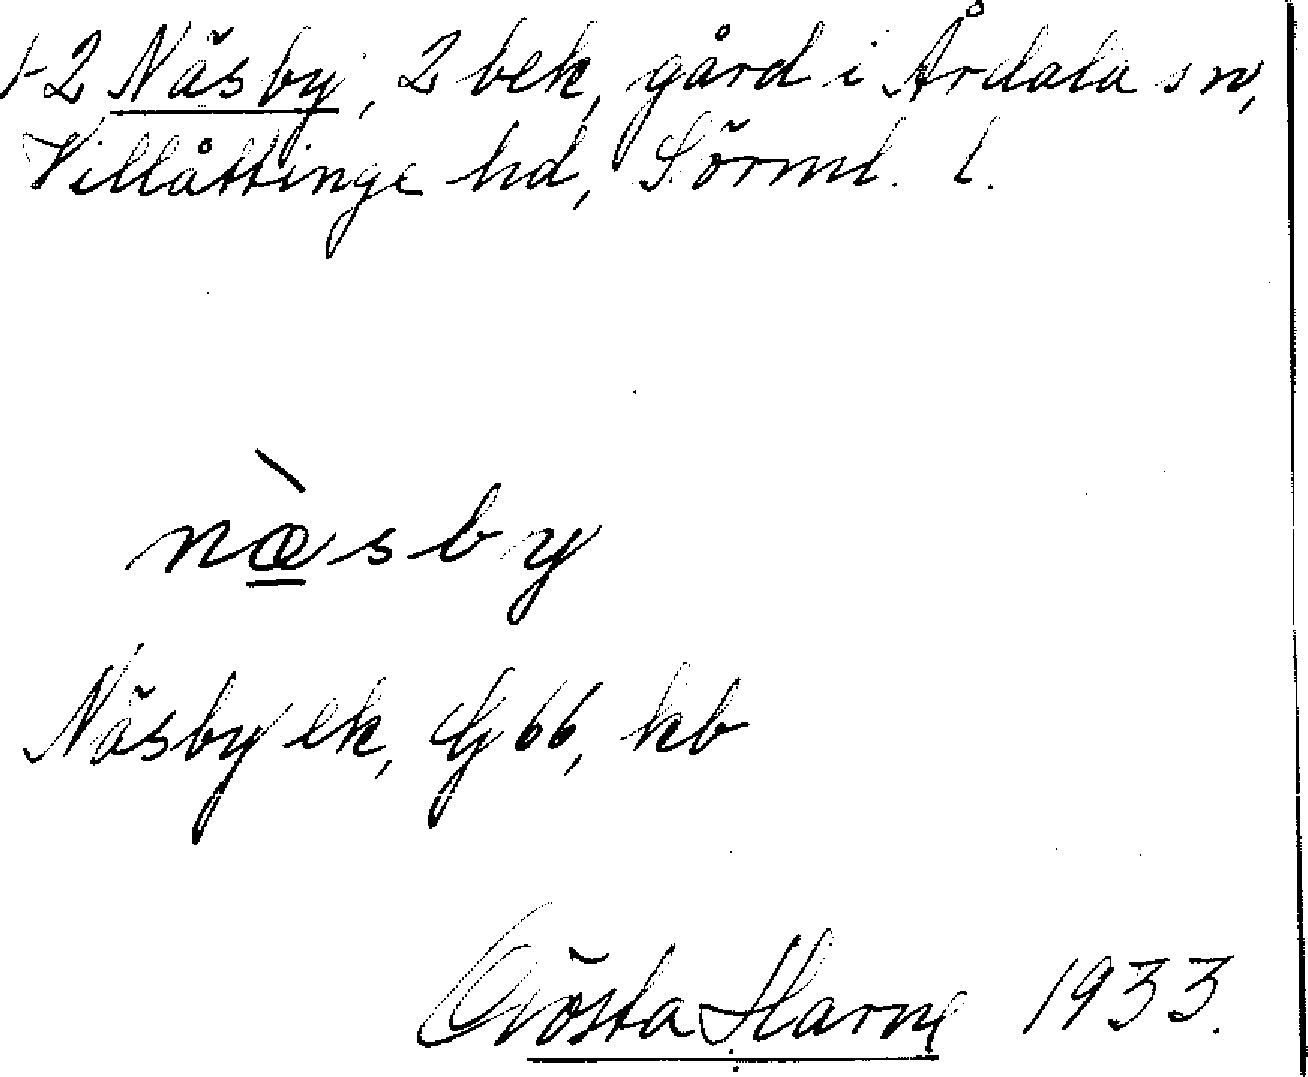 1-2 Näsby, 2 bek, gård i Årdala sn,
Villåttinge hd, Sörml. l.
næ̀sby
Näsby ek, Gj 66, kb
Gösta Harne 1933.